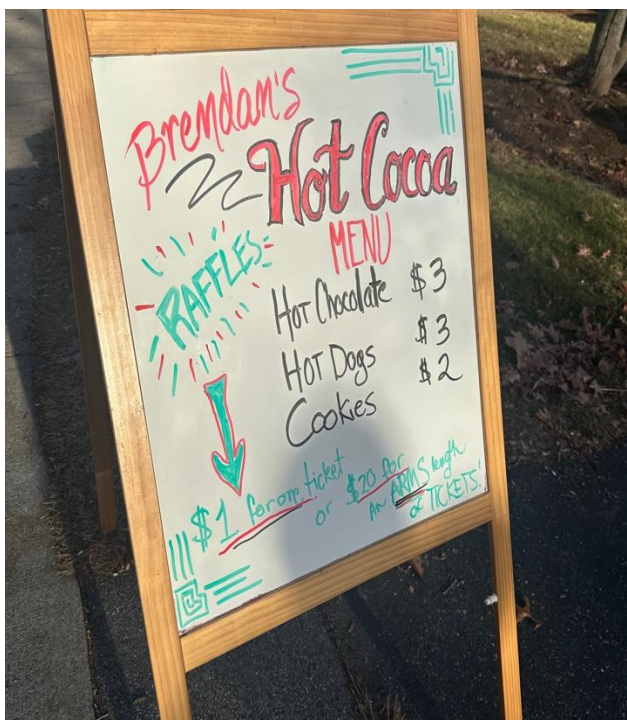 Brendan's
Hot Cocoa
MENU
RAFFLES
Hot Chocolate $3
Hot Dogs $3
Cookies $2
$1 for one ticket
or
$20 for
an ARMS length
of TICKETS!